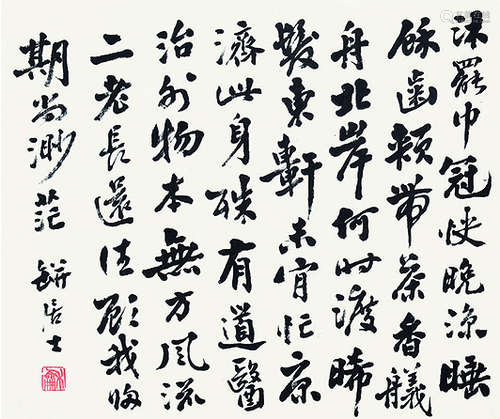 沐罷巾冠快晚涼睡
餘齒頰帶茶香艤
舟北岸何时渡晞
髮東軒未肎忙康
濟此身殊有道醫
治外物本無方風流
二老長還往顧我歸
期尚渺茫 缾居士